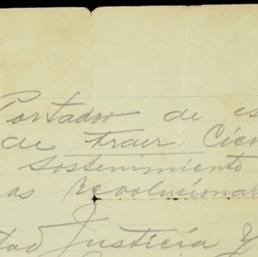 Portador de es
de traer Cien
Sostenimiento
as Revolusionar
tad Justicia Y